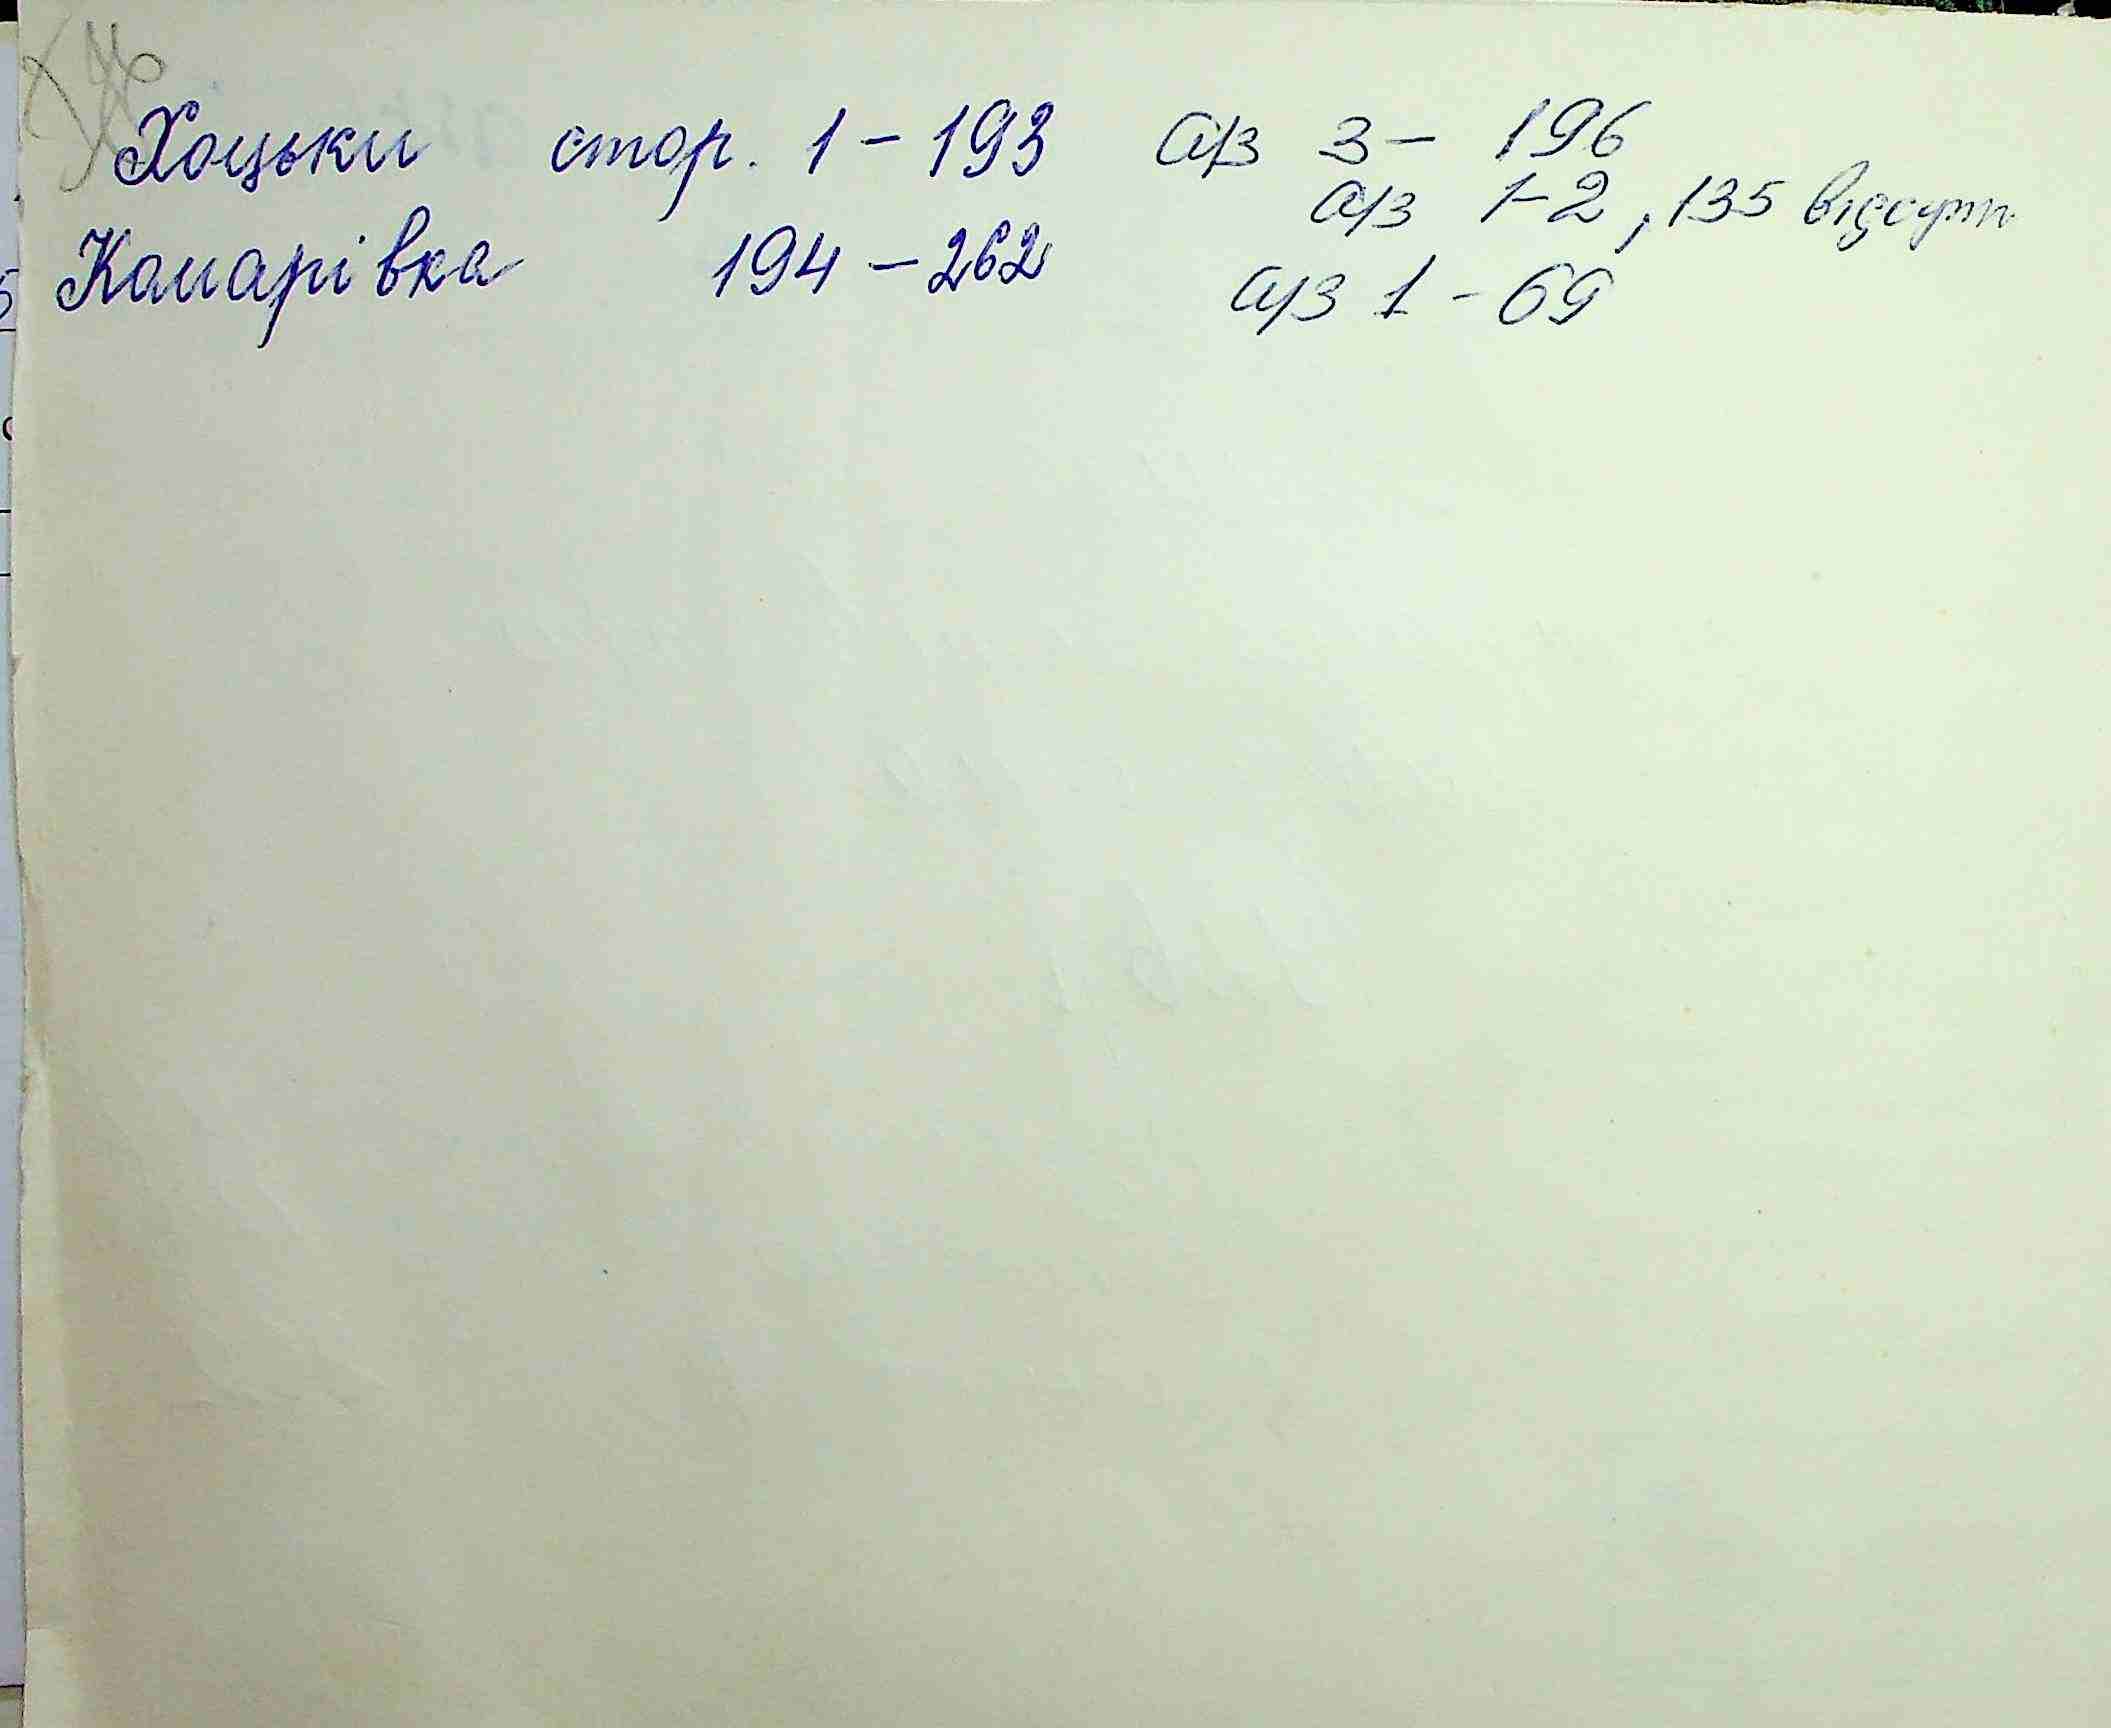 Хоцьки стор. 1 – 193 а/з 3 – 196
а/з 1-2, 135 відсутн
Комарівка 194 – 262 а/з 1 – 69